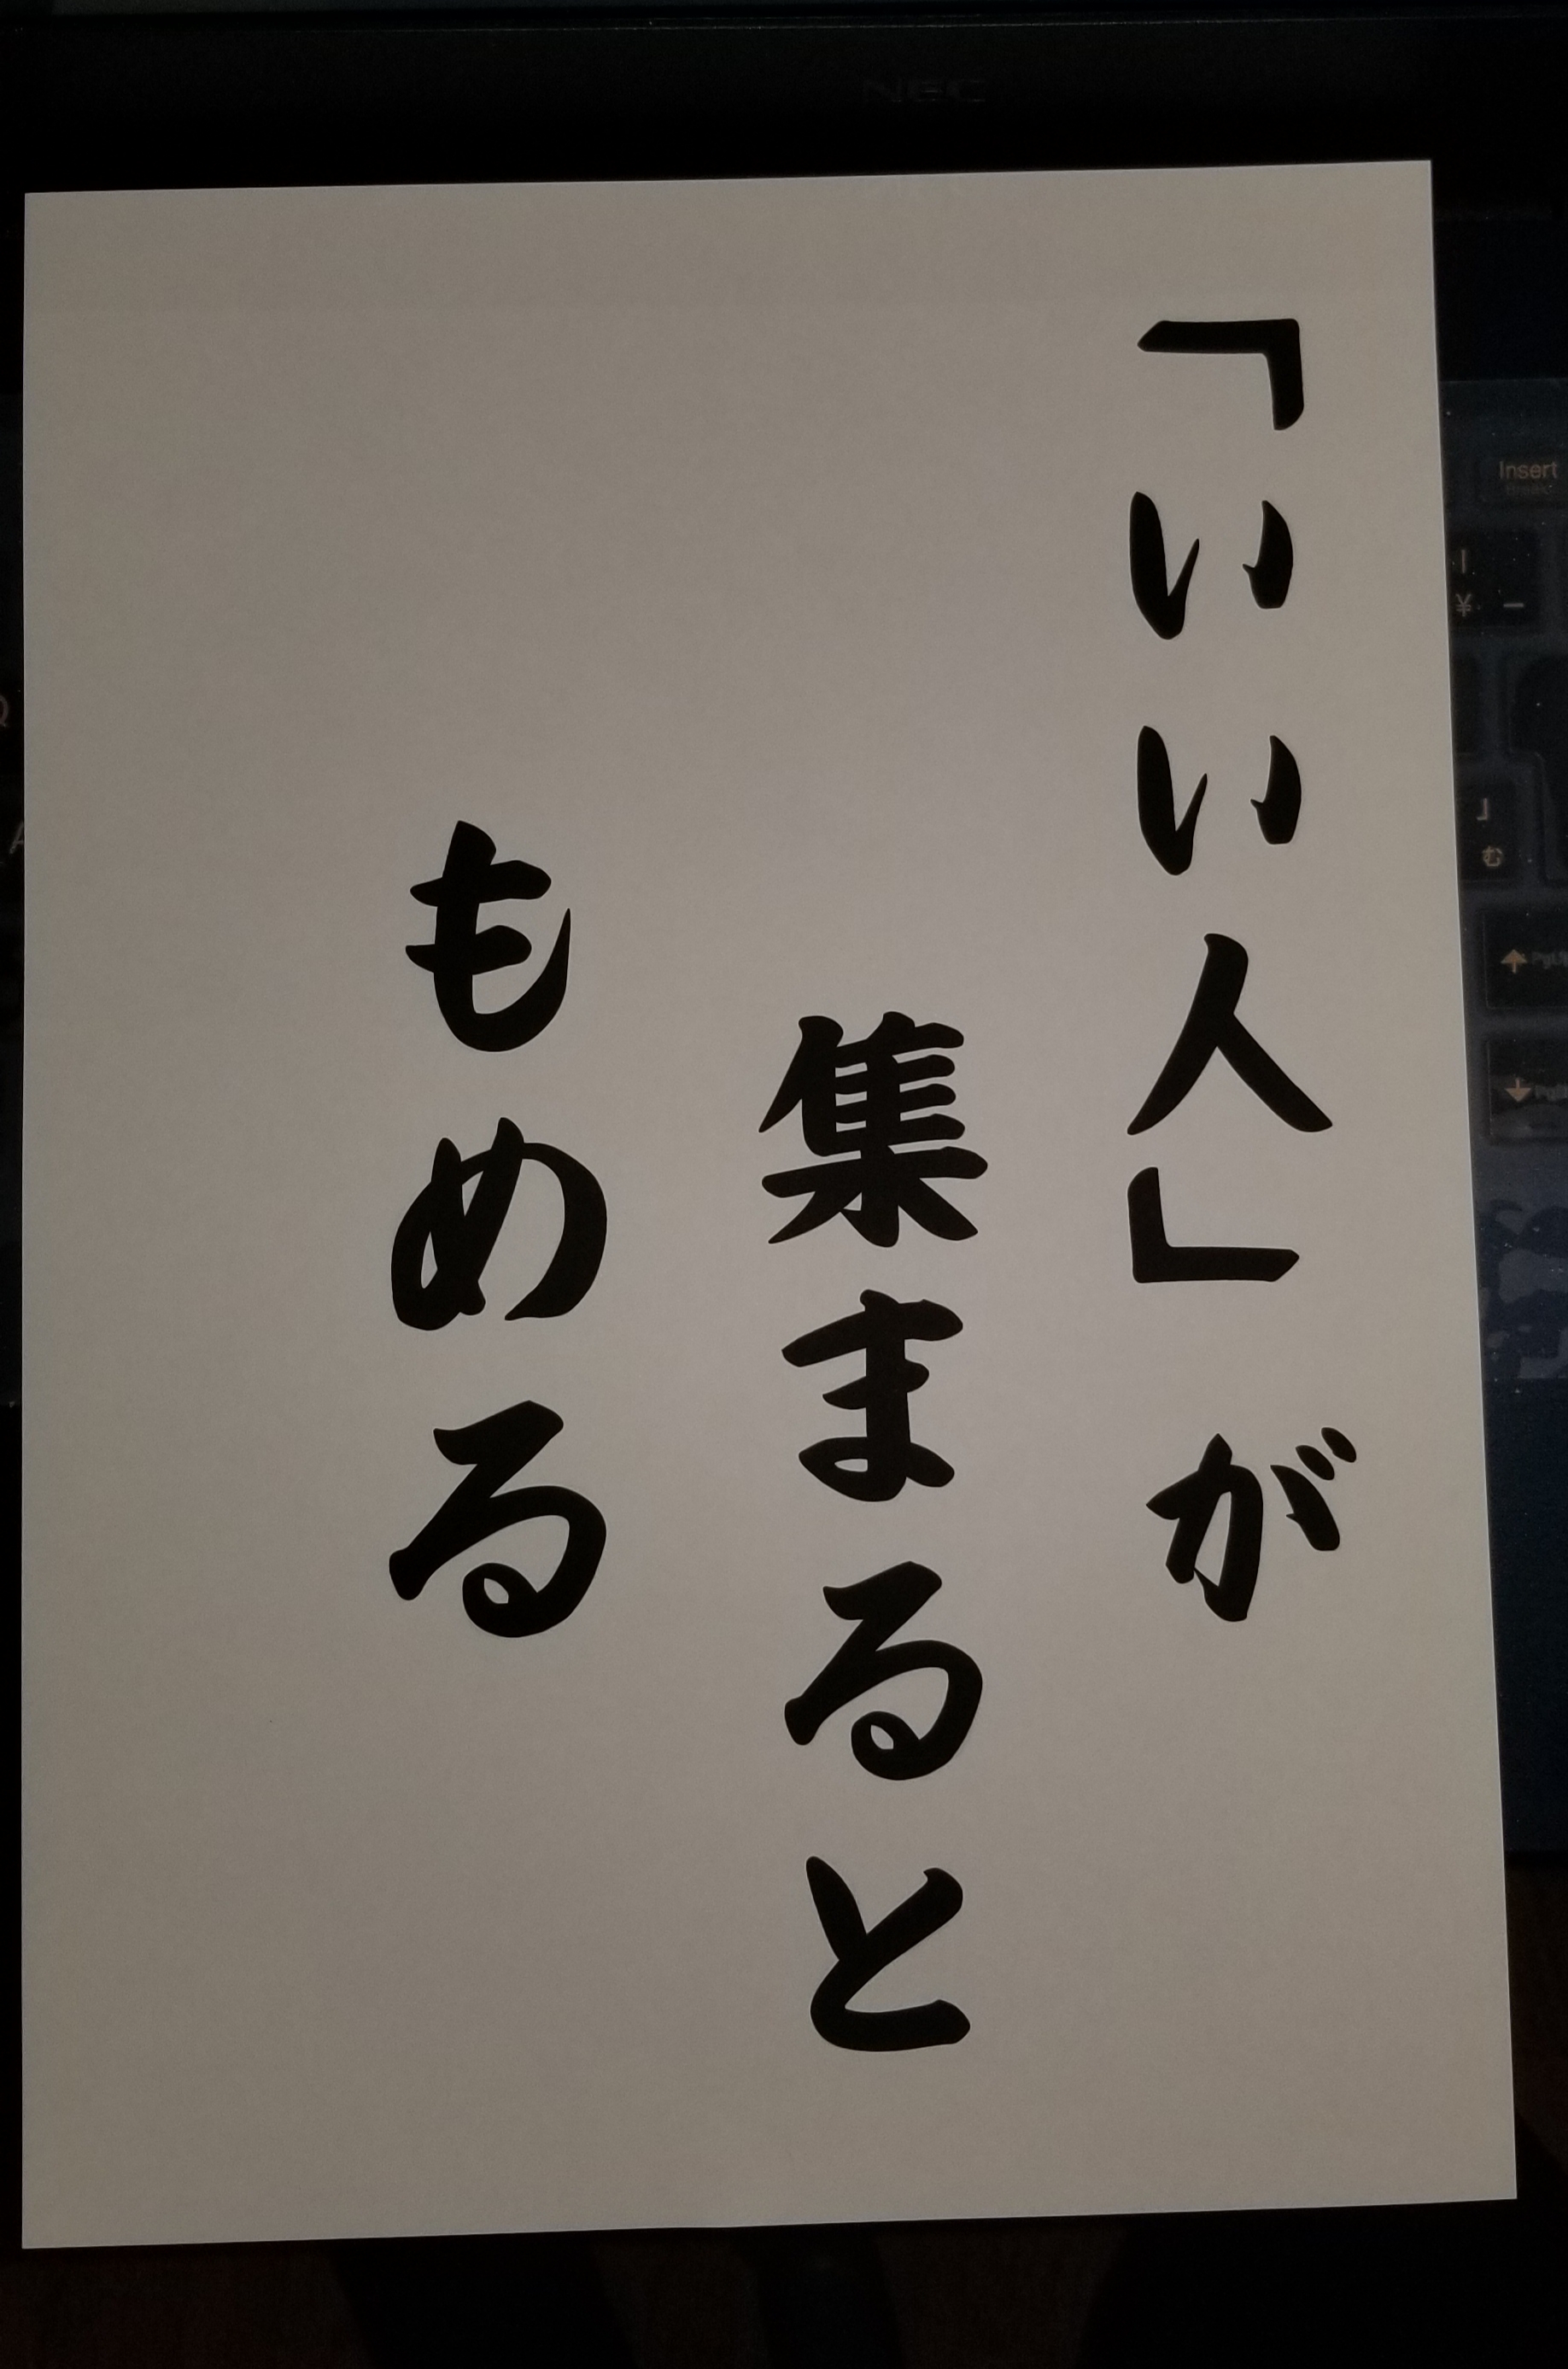 「いい人」が
集まると
もめる
NEC
Insert
¥
-
」
む